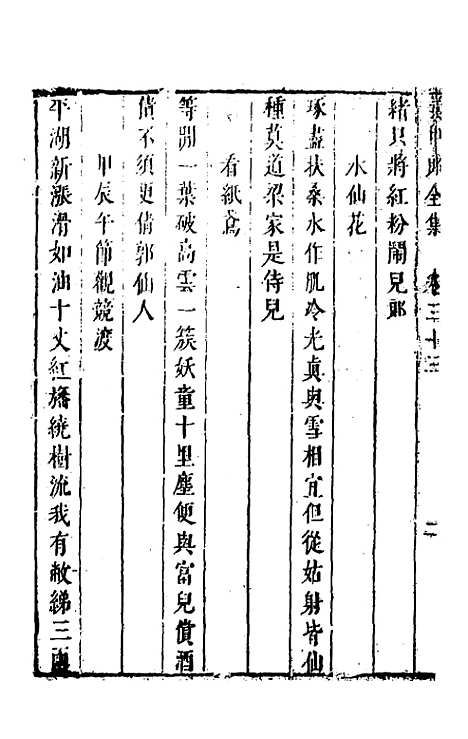 全集 卷三十三
緒只將紅粉鬧兒郎
水仙花
琢盡扶桑水作肌冷光真與雪相宜但從姑射皆仙
種莫道梁家是侍兒
看紙鳶
等閒一葉破高雲一簇妖童十里塵便與富兒償酒
債不須更倩郭仙人
甲辰午節觀競渡
平湖新漲滑如油十丈紅旛繞樹流我有敝綈三